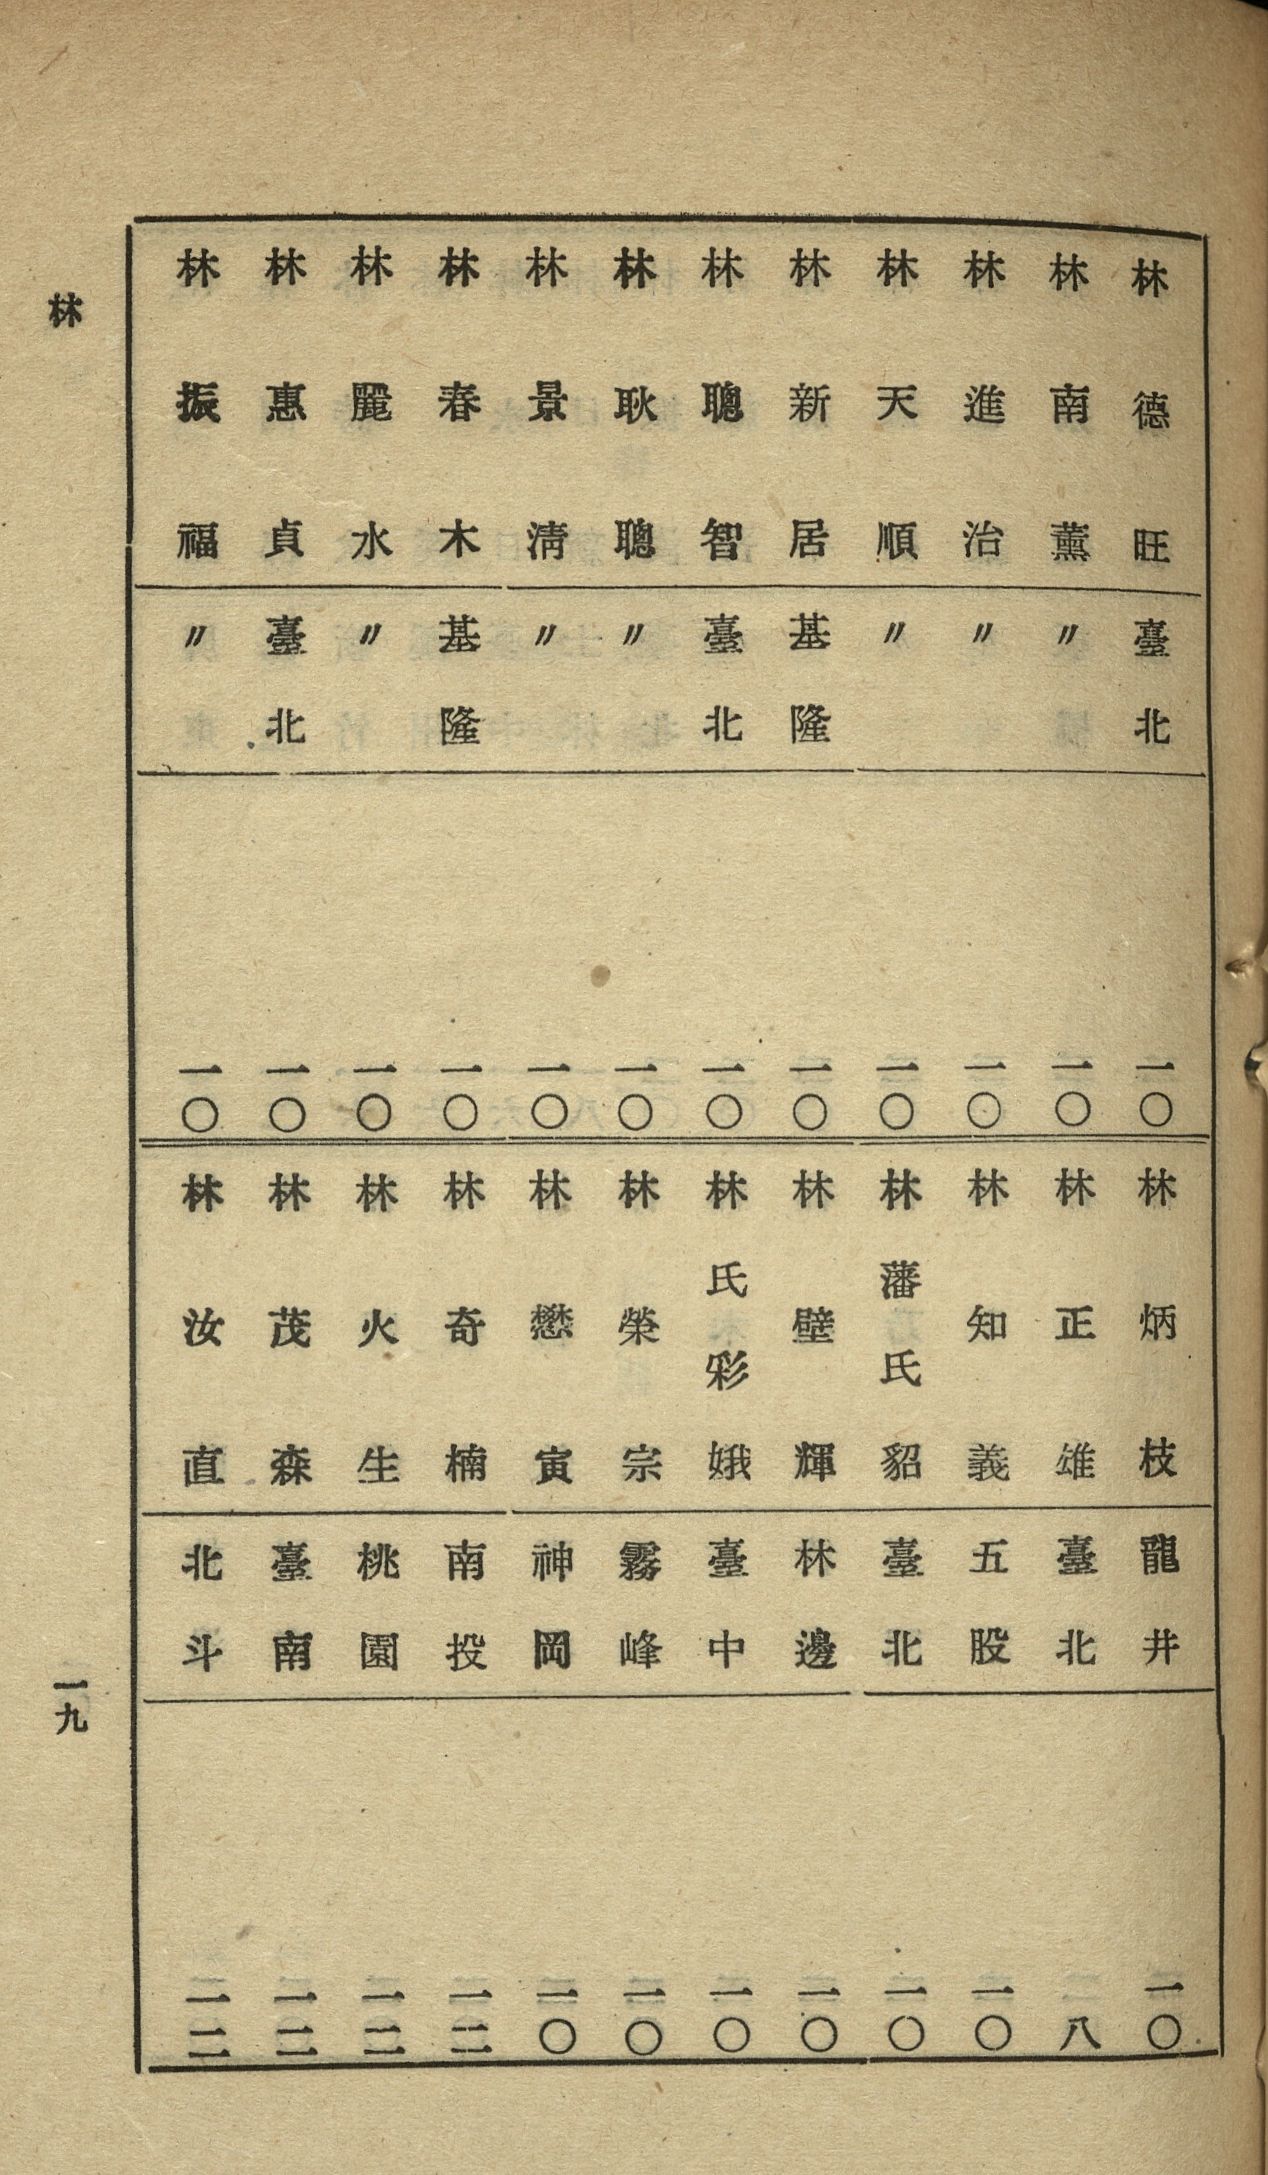 林德旺 臺北 一〇
林南薰 〃 一〇
林進治 〃 一〇
林天順 〃 一〇
林新居 基隆 一〇
林聰智 臺北 一〇
林耿聰 〃 一〇
林景淸 〃 一〇
林春木 基隆 一〇
林麗水 〃 一〇
林惠貞 臺北 一〇
林振福 〃 一〇
林炳枝 龍井 一〇
林正雄 臺北 八
林知義 五股 一〇
林藩氏貂 臺北 一〇
林壁輝 林邊 一〇
林氏彩娥 臺中 一〇
林榮宗 霧峰 一〇
林懋寅 神岡 一〇
林奇楠 南投 一二
林火生 桃園 一二
林茂森 臺南 一二
林汝直 北斗 一二
林
一九